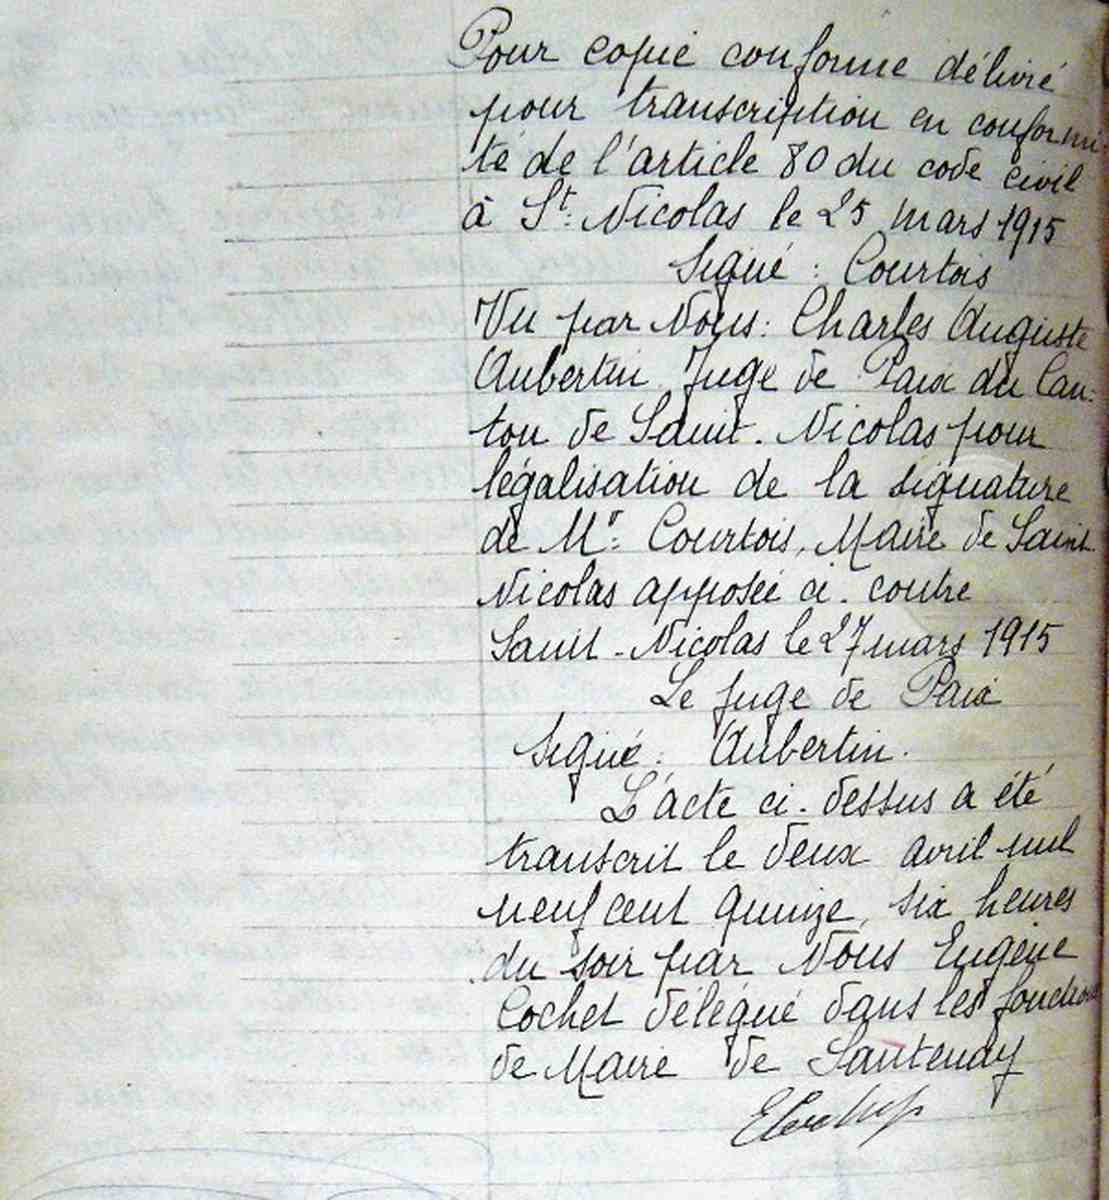 Pour copie conforme délivré
pour transcription en conformi-
té de l'article 80 du code civil
à St: Nicolas le 25 mars 1915
Signé : Courtois
Vu par Nous: Charles Auguste
Aubertin Juge de Paix du Can-
ton de Saint-Nicolas pour
légalisation de la signature
de Mr: Courtois, Maire de Saint-
Nicolas apposée ci-contre
Saint-Nicolas le 27 mars 1915
Le Juge de Paix
Signé : Aubertin.
L'acte ci-dessus a été
transcrit le deux avril mil
neuf cent quinze, six heures
du soir par Nous Eugène
Cochet délégué dans les fonctions
de Maire de Santenay